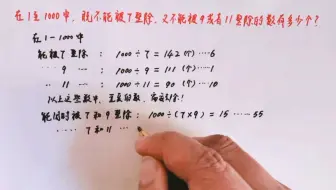 在1至1000中，既不能被7整除，又不能被9或者11整除的数有多少个？
在1—1000中
能被7整除：1000÷7=142(个)……6
…… 9 …：1000÷9=111(个)……1
… 11 …：1000÷11=90(个)……10
以上这些数中，重复的数，需剔除！
能同时被7和9整除：1000÷(7×9)=15……55
…… 7和11 ……